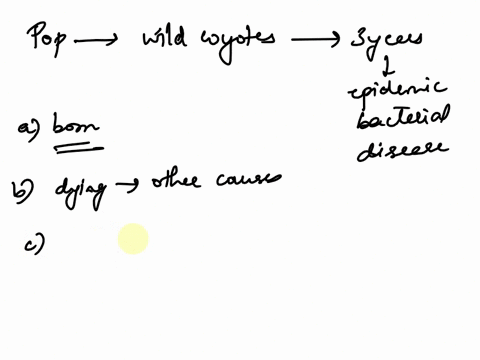 Pop → wild coyotes → 3 years
↓
epidemic
bacterial
disease
a) born
b) dying → other causes
c)